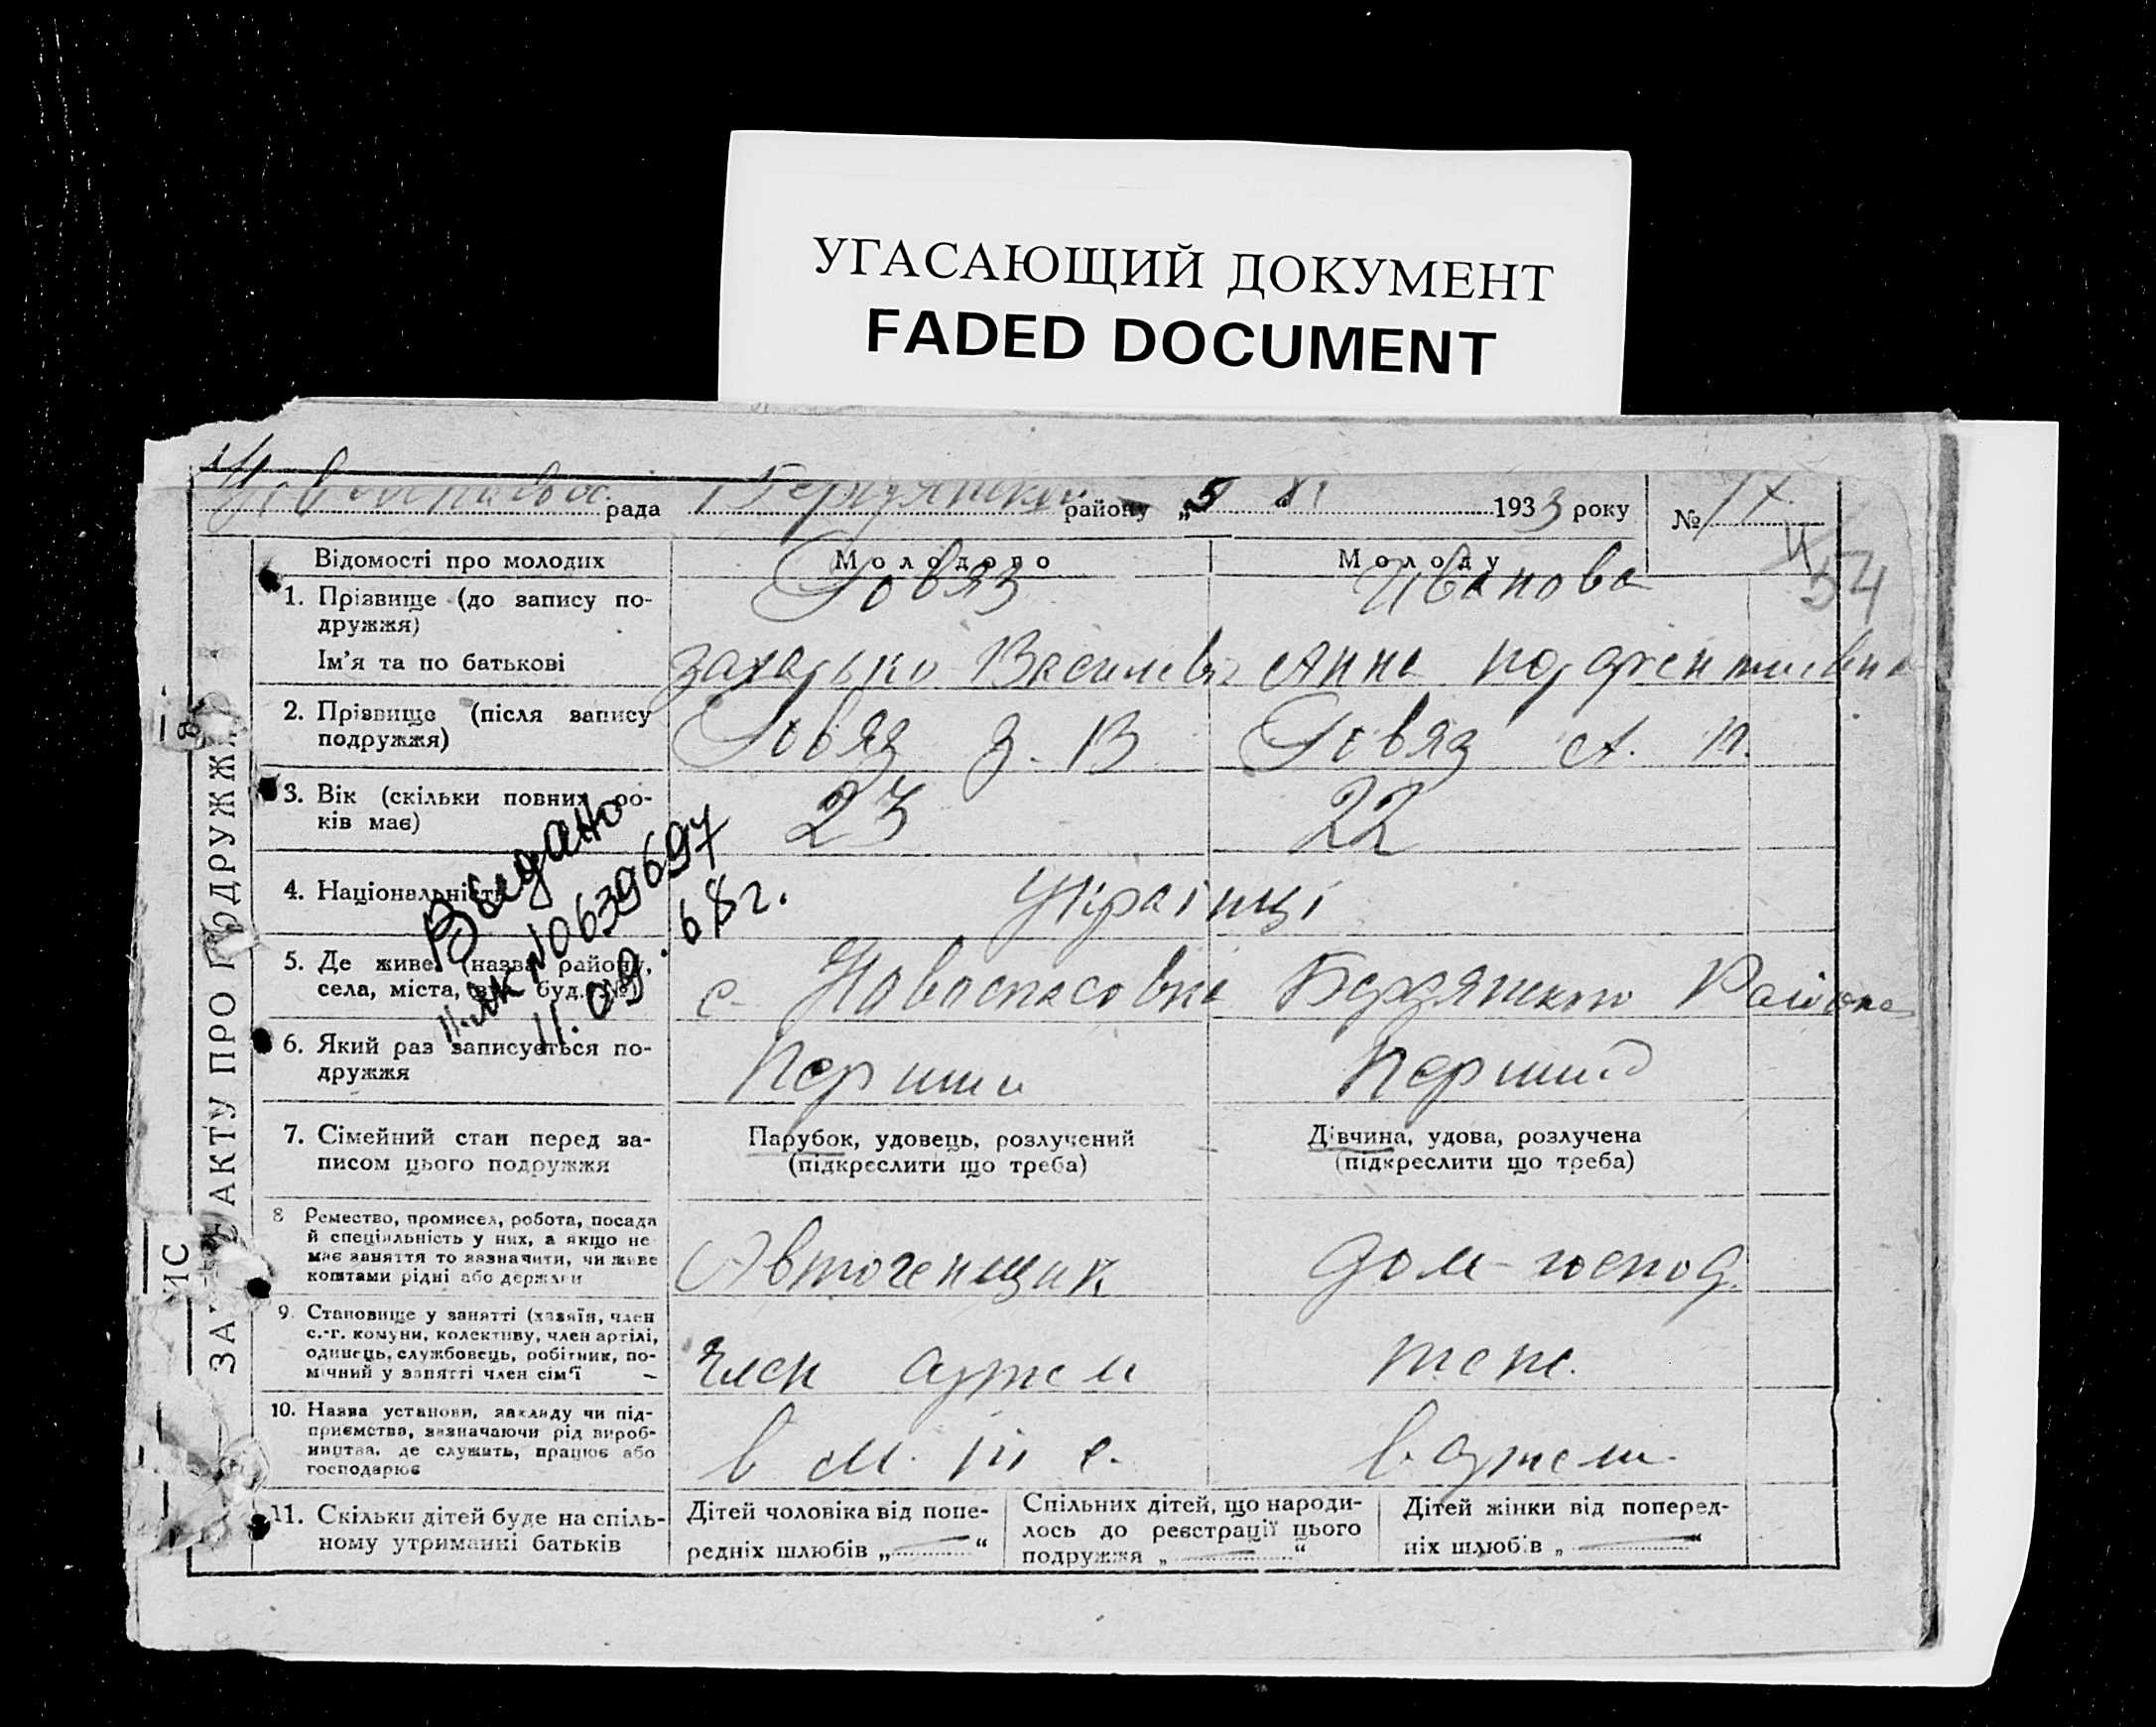 УГАСАЮЩИЙ ДОКУМЕНТ
FADED DOCUMENT
рада Бердянськ району „5“ XI 1933 року № 17
54
ЗАПИС АКТУ ПРО ПОДРУЖЖЯ
Відомості про молодих Молодого Молоду
1. Прізвище (до запису по-
дружжя) Говяз Иванова
Ім'я та по батькові Василів Анна
2. Прізвище (після запису
подружжя) Говяз З. В Говяз А. П.
3. Вік (скільки повних ро-
ків має) 23 22
4. Національність Українці
5. Де живе (назва району,
села, міста, буд. №) с. Новоспасовка Бердянського Района
6. Який раз записується по-
дружжя Перший Перший
7. Сімейний стан перед за-
писом цього подружжя
Парубок, удовець, розлучений
(підкреслити що треба)
Дівчина, удова, розлучена
(підкреслити що треба)
8 Ремество, промисел, робота, посада
й спеціяльність у них, а якщо не
має заняття то зазначити, чи живе
коштами рідні або держави
Автогенщик дом-господ.
9. Становище у занятті (хазяїн, член
с.-г. комуни, колективу, член артілі,
одинець, службовець, робітник, по-
мічний у занятті член сім'ї
член артели тоже.
10. Назва установи, закладу чи під-
приємства, зазначаючи рід вироб-
ництва, де служить, працює або
господарює
в М. Т. С. в артели
11. Скільки дітей буде на спіль-
ному утриманні батьків
Дітей чоловіка від попе-
редніх шлюбів „—“
Спільних дітей, що народи-
лось до реєстрації цього
подружжя „—“
Дітей жінки від поперед-
ніх шлюбів „—“
Видано
II-ЯК №0639697
11.09.68г.